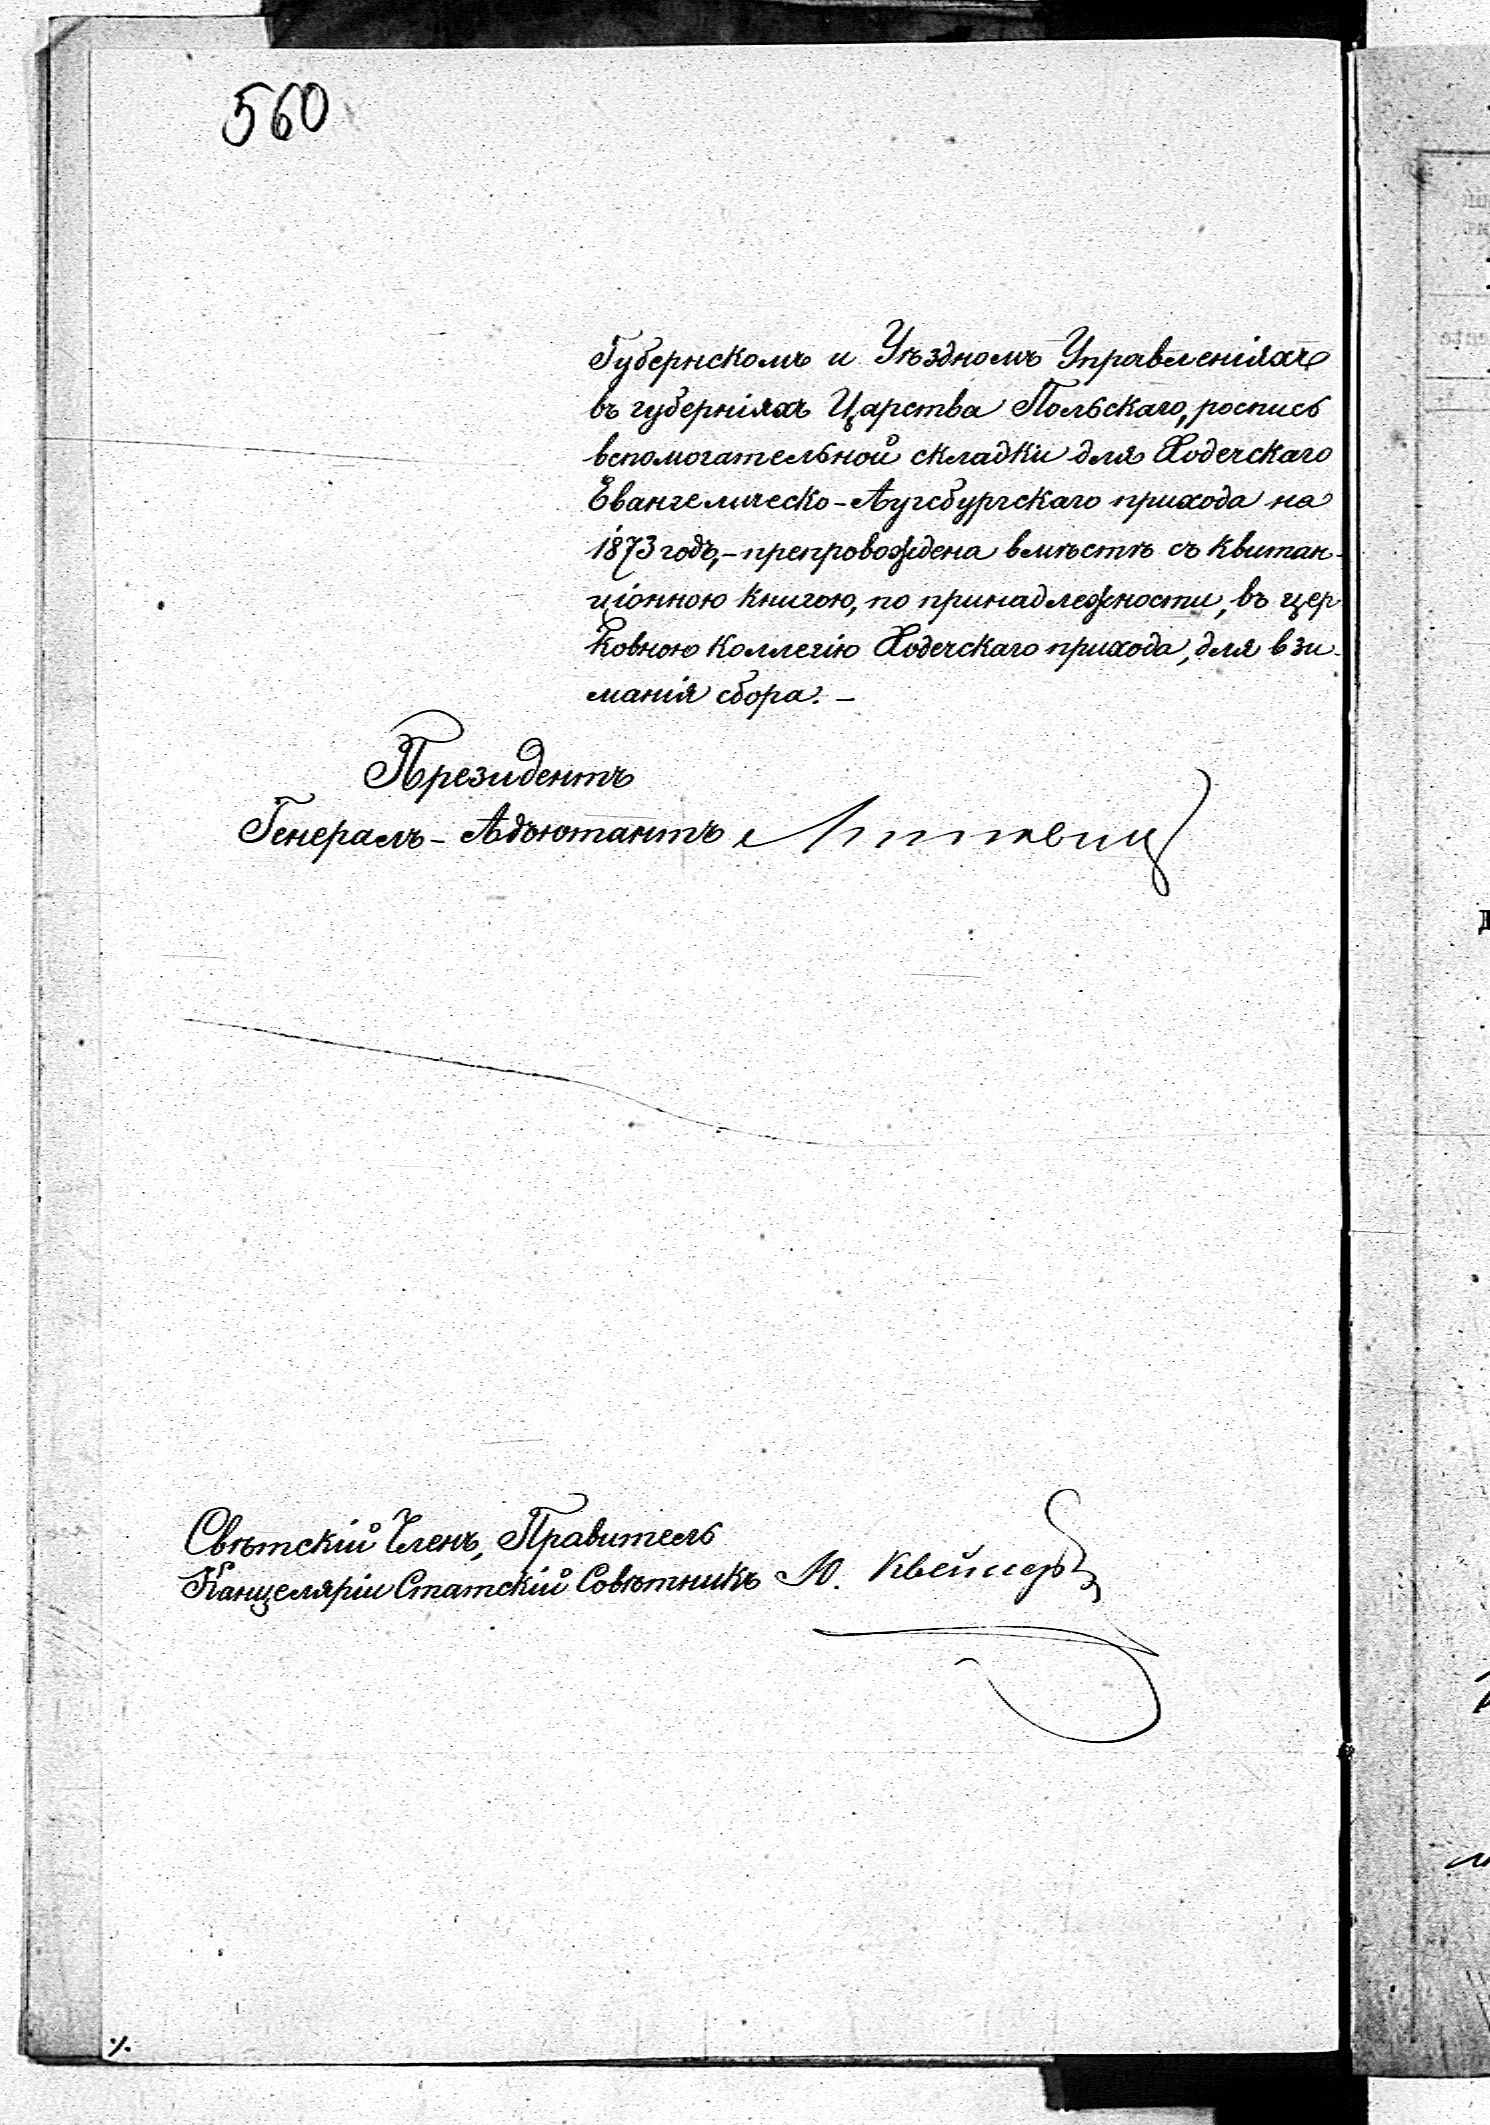 560
Губернскомъ и Уѣздномъ Управленіяхъ
въ губерніяхъ Царства Польскаго, роспись
вспомогательной складки для Ходечскаго
Евангелическо-Аугсбургскаго прихода на
1873 годъ,- препровождена вмѣстѣ съ квитан-
ціонною книгою, по принадлежности, въ цер-
ковною коллегію Ходечскаго прихода, для взи-
манія сбора. -
Президентъ
Генералъ-Адъютантъ
Свѣтскій Членъ, Правитель
Канцеляріи Статскій Совѣтникъ Ю.